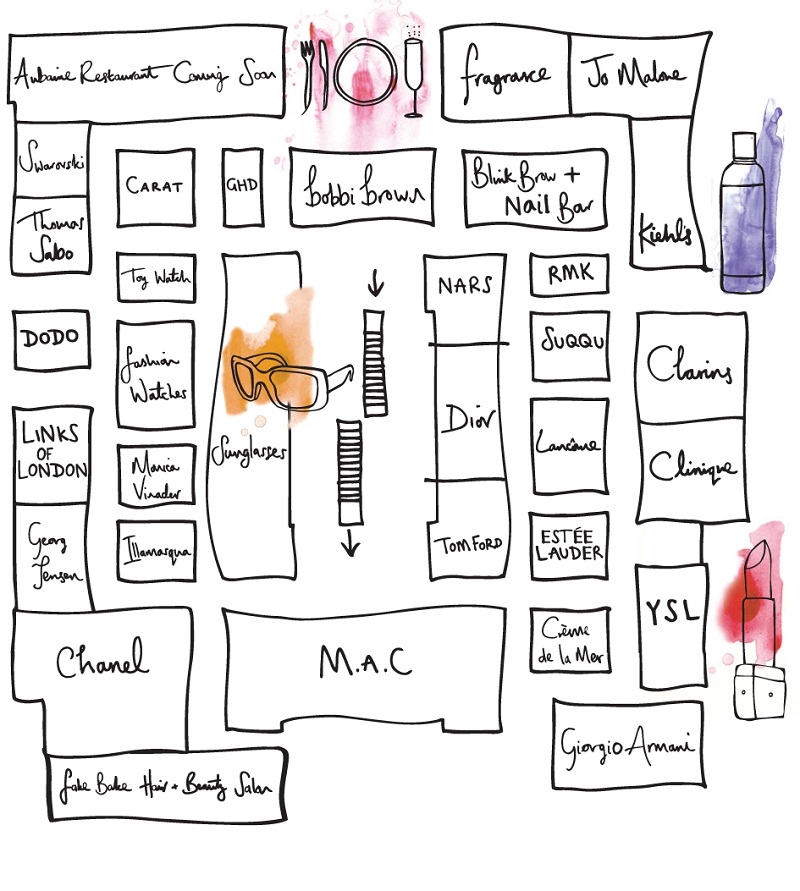 Aubaine Restaurant Coming Soon
fragrance
Jo Malone
Swarovski
CARAT
GHD
bobbi brown
Blink Brow +
Nail Bar
Thomas
Sabo
Kiehl's
Toy Watch
NARS
RMK
DODO
fashion
Watches
SUQQU
Clarins
Dior
LINKS
OF
LONDON
Sunglasses
Lancôme
Clinique
Monica
Vinader
Georg
Jensen
Illamasqua
TOM FORD
ESTÉE
LAUDER
YSL
Chanel
M.A.C
Crème
de la Mer
Giorgio Armani
fake Bake Hair + Beauty Salon